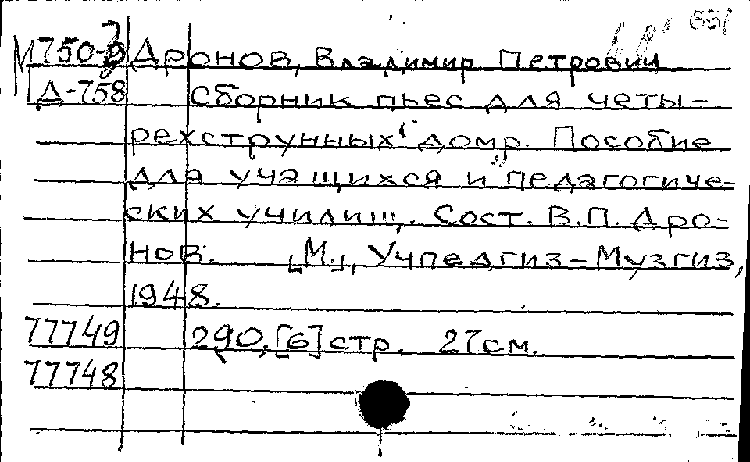 М750-3 Дронов, Владимир Петрович
Д-758 Сборник пьес для четы-
рехструнных домр. Пособие
для учащихся и педагогиче-
ских училищ. Сост. В.П. Дро-
нов. [М.], Учпедгиз-Музгиз,
1948.
77749 290, [6] стр. 27см.
77748